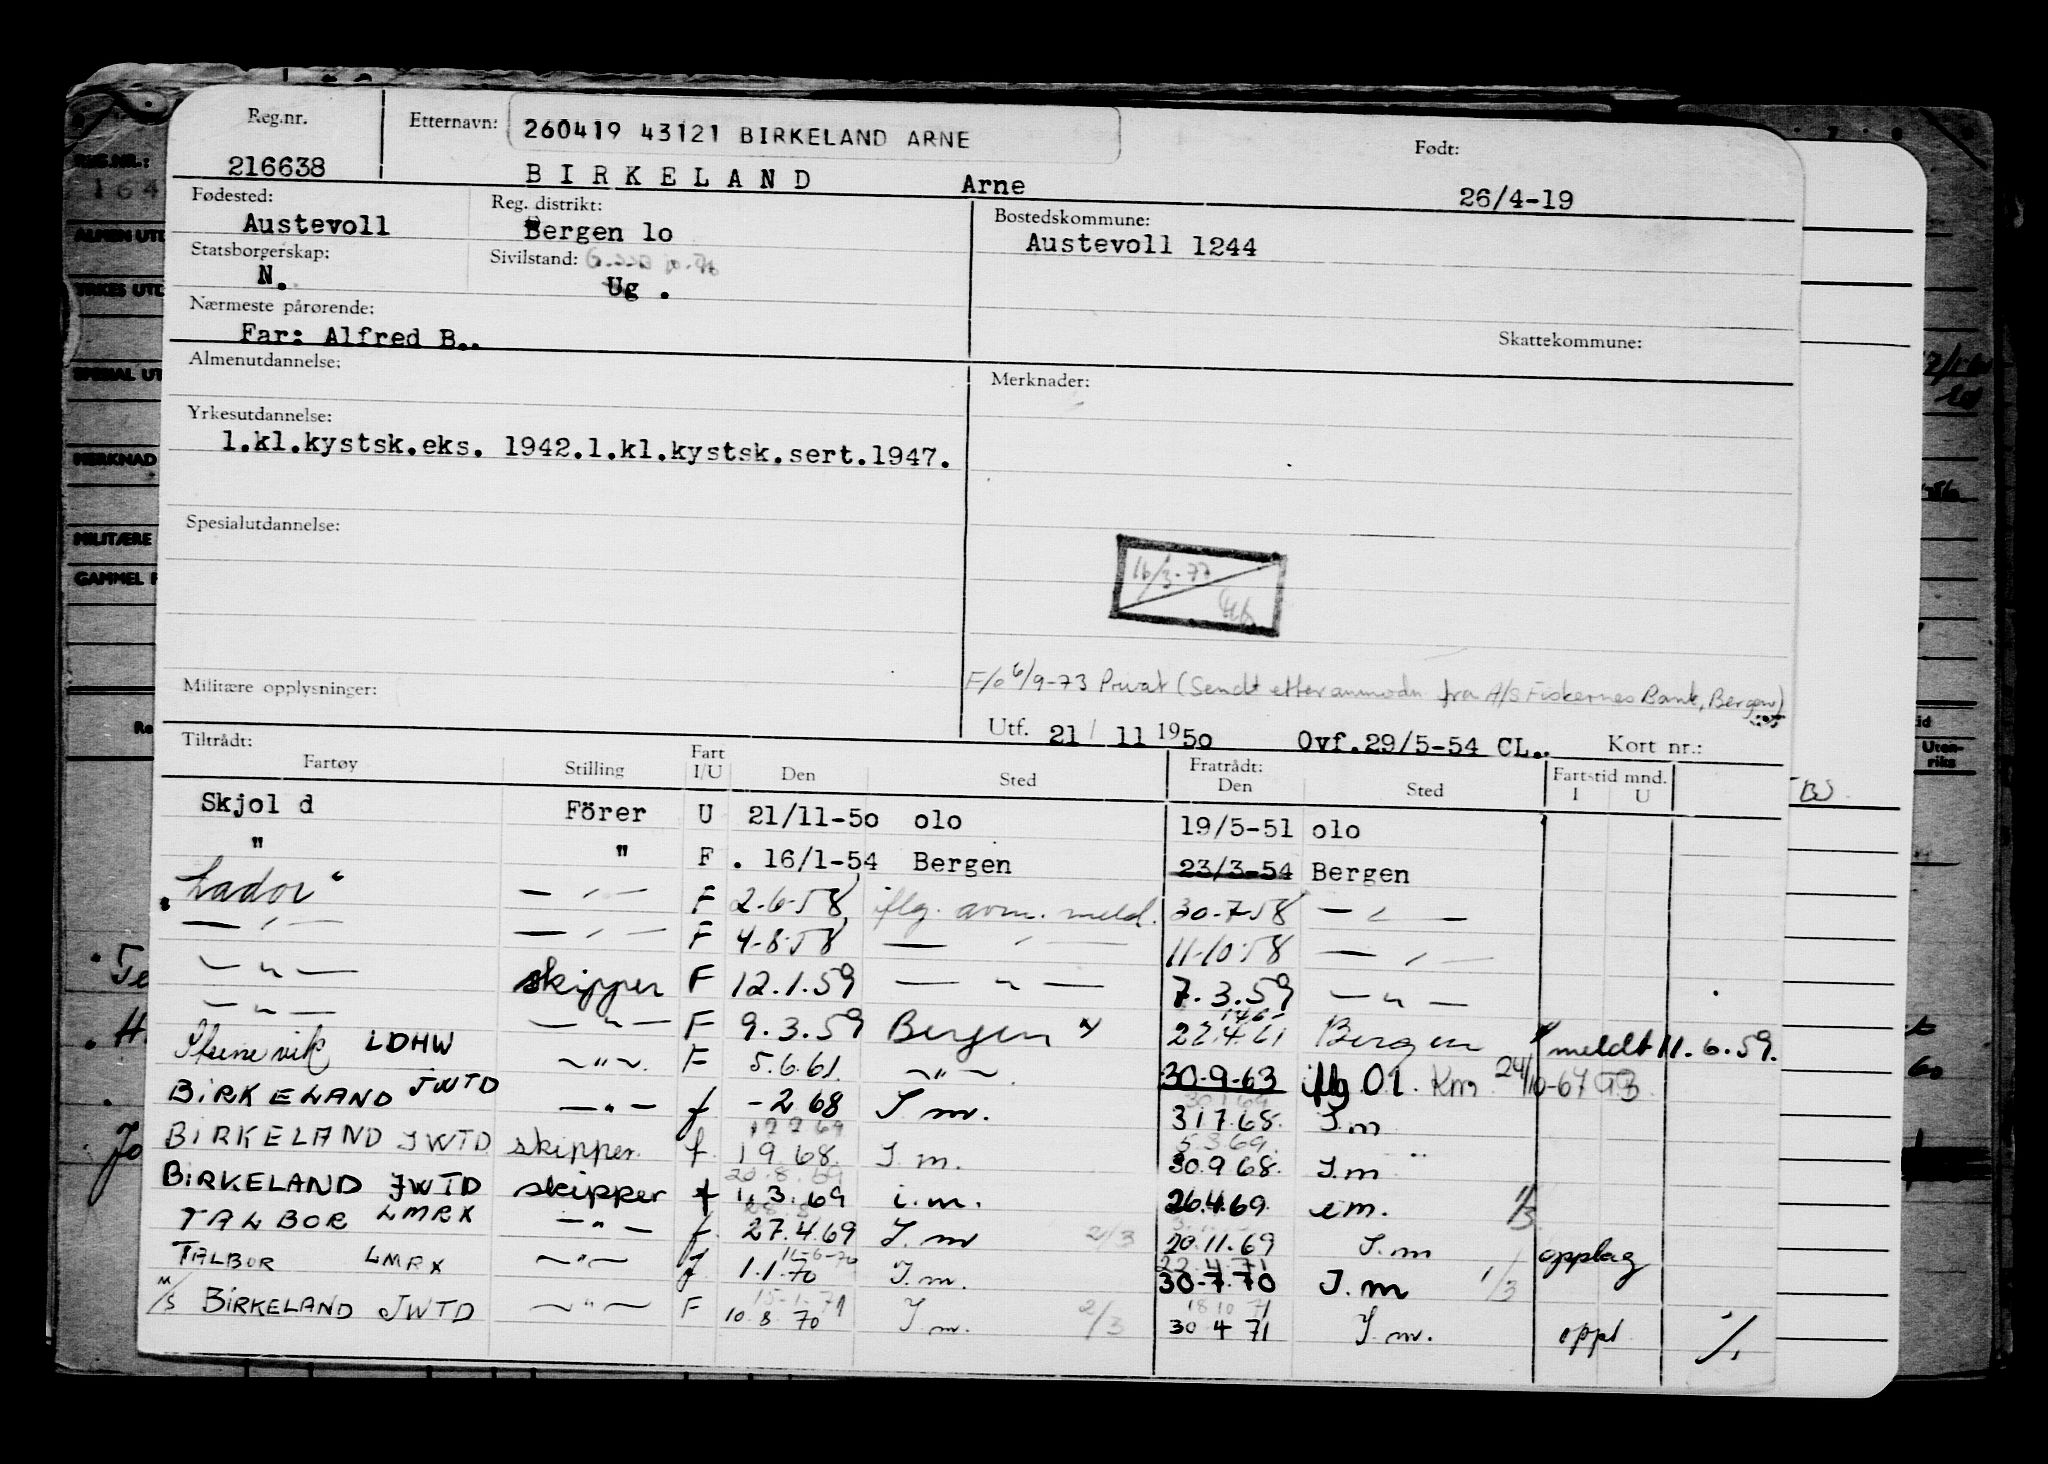 Reg.nr. Etternavn: 260419 43121 BIRKELAND ARNE Født:
216638 BIRKELAND Arne 26/4-19
Fødested: Reg. distrikt: Bostedskommune:
Austevoll Bergen lo Austevoll 1244
Statsborgerskap: Sivilstand:
N. Ug .
Nærmeste pårørende:
Far: Alfred B.. Skattekommune:
Almenutdannelse: Merknader:
Yrkesutdannelse:
1.kl.kystsk.eks. 1942.1.kl.kystsk.sert.1947.
Spesialutdannelse:
16/3-77
Militære opplysninger: F/o 6/9-73 Privat (Sendt etter anmodn. fra A/S Fiskernes Bank, Bergen)
Utf. 21/ 11 1950 Ovf.29/5-54 CL.. Kort nr.:
Tiltrådt: Fratrådt:
Fartøy Stilling Fart I/U Den Sted Den Sted Fartstid mnd. I U
Skjol d Förer U 21/11-5o olo 19/5-51 olo
" " F . 16/1-54 Bergen 23/3-54 Bergen
"Lador" — " — F 2-6-58 iflg. avm. meld. 30-7-58 — " —
— " — — " — F 4-8-58 — " — 11-10-58 — " —
— " — skipper F 12.1.59 — " — 7.3.59 — " —
— " — — " — F 9.3.59 Bergen 22.4.61 Bergen meldt 11.6.59.
LDHW — " — F 5.6.61. — " — 30-9-63 iflg. O1. Km 24/10-67
BIRKELAND JWTD — " — f -2 68 I.m. 31 7.68. I.m
BIRKELAND JWTD skipper f. 1 9.68. I.m. 30.9 68. I.m
BIRKELAND JWTD skipper f 1.3.69 i.m. 26.4.69. i.m. 1/3
TALBOR LMRX — " — f. 27.4.69 I.m 2/3 20.11.69 I.m opplag
TALBOR LMRX — " — f. 1.1.70 I.m. 30-7-70 I.m 1/3
M/S BIRKELAND JWTD — " — F 10.8 70 I.m. 2/3 30 4 71 I.m. oppl